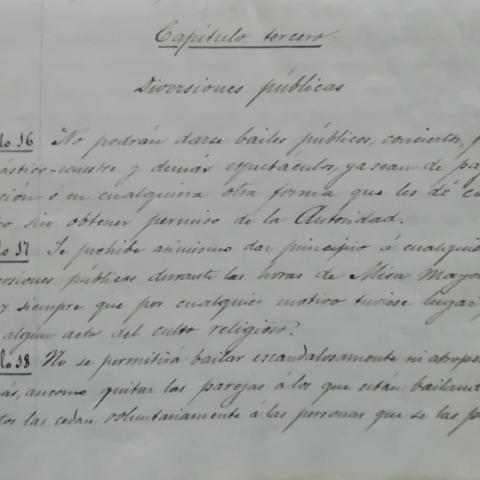 Capítulo tercero
Diversiones públicas
lo 16 No podrán darse bailes públicos, conciertos, f
ástico-ecuestre y demás espectáculos, ya sean de pa
ción ó en cualquiera otra forma que les dé ca
sin obtener permiso de la Autoridad.
lo 17 Se prohibe asimismo dar principio á cualquie
ersiones públicas durante las horas de Misa mayo
y siempre que por cualquier motivo tuviese lugar
algun acto del culto religioso.
lo 18 No se permitirá bailar escandalosamente ni atrope
ás, asi como quitar las parejas á los que están bailan
tos las cedan voluntariamente á las personas que se las p